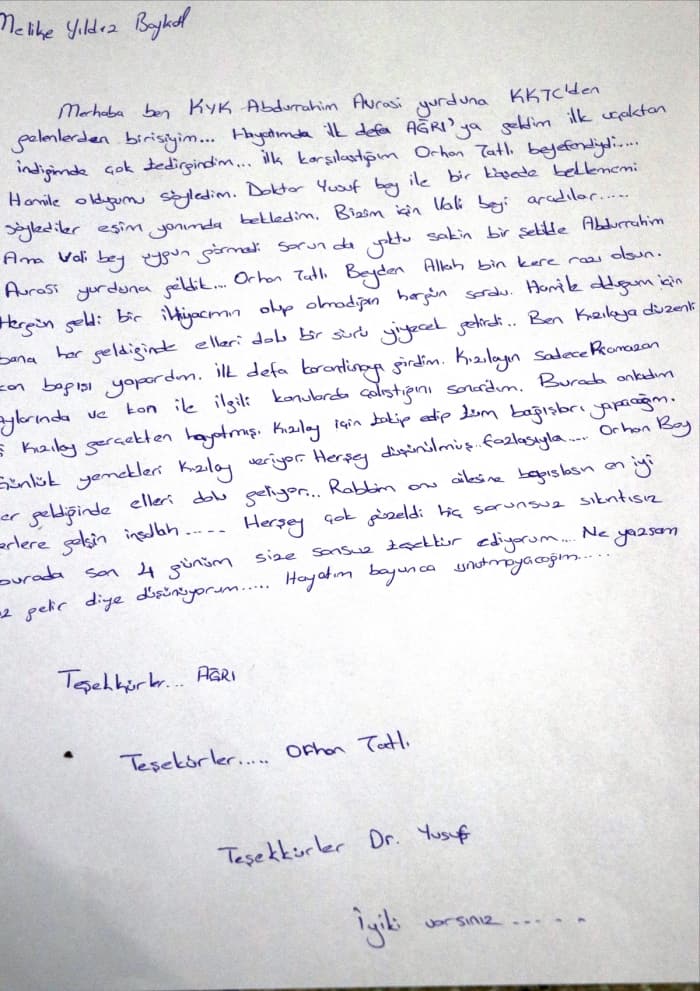 Melike Yıldız Baykal
Merhaba ben KYK Abdurrahim Avrasi yurduna KKTC'den
gelenlerden birisiyim... Hayatımda ilk defa AĞRI'ya geldim ilk uçaktan
indiğimde çok tedirgindim... ilk karşılaştığım Orhan Tatlı beyefendiydi.....
Hamile olduğumu söyledim. Doktor Yusuf bey ile bir köşede beklememi
söylediler eşim yanımda bekledim. Bizim için Vali beyi aradılar.....
Ama Vali bey uygun görmedi sorun da yoktu sakin bir şekilde Abdurrahim
Avrasi yurduna geldik.... Orhan Tatlı Beyden Allah bin kere razı olsun.
Hergün geldi bir ihtiyacımın olup olmadığını hergün sordu. Hamile olduğum için
bana her geldiğinde elleri dolu bir sürü yiyecek getirdi.. Ben Kızılaya düzenli
kan bağışı yapardım. ilk defa karantinaya girdim. Kızılayın sadece Ramazan
aylarında ve kan ile ilgili konularda çalıştığını sanardım. Burada anladım
Kızılay gerçekten hayatmış. Kızılay için takip edip tüm bağışları yapacağım.
Günlük yemekleri Kızılay veriyor. Herşey düşünülmüş fazlasıyla..... Orhan Bey
er geldiğinde elleri dolu geliyor... Rabbim onu ailesine bağışlasın en iyi
erlere gelsin inşallah..... Herşey çok güzeldi hiç sorunsuz sıkıntısız
burada son 4 günüm size sonsuz teşekkür ediyorum.... Ne yazsam
az gelir diye düşünüyorum..... Hayatım boyunca unutmayacağım.....
Teşekkürler... AĞRI
Teşekürler..... Orhan Tatlı
Teşekkürler Dr. Yusuf
İyiki varsınız .....